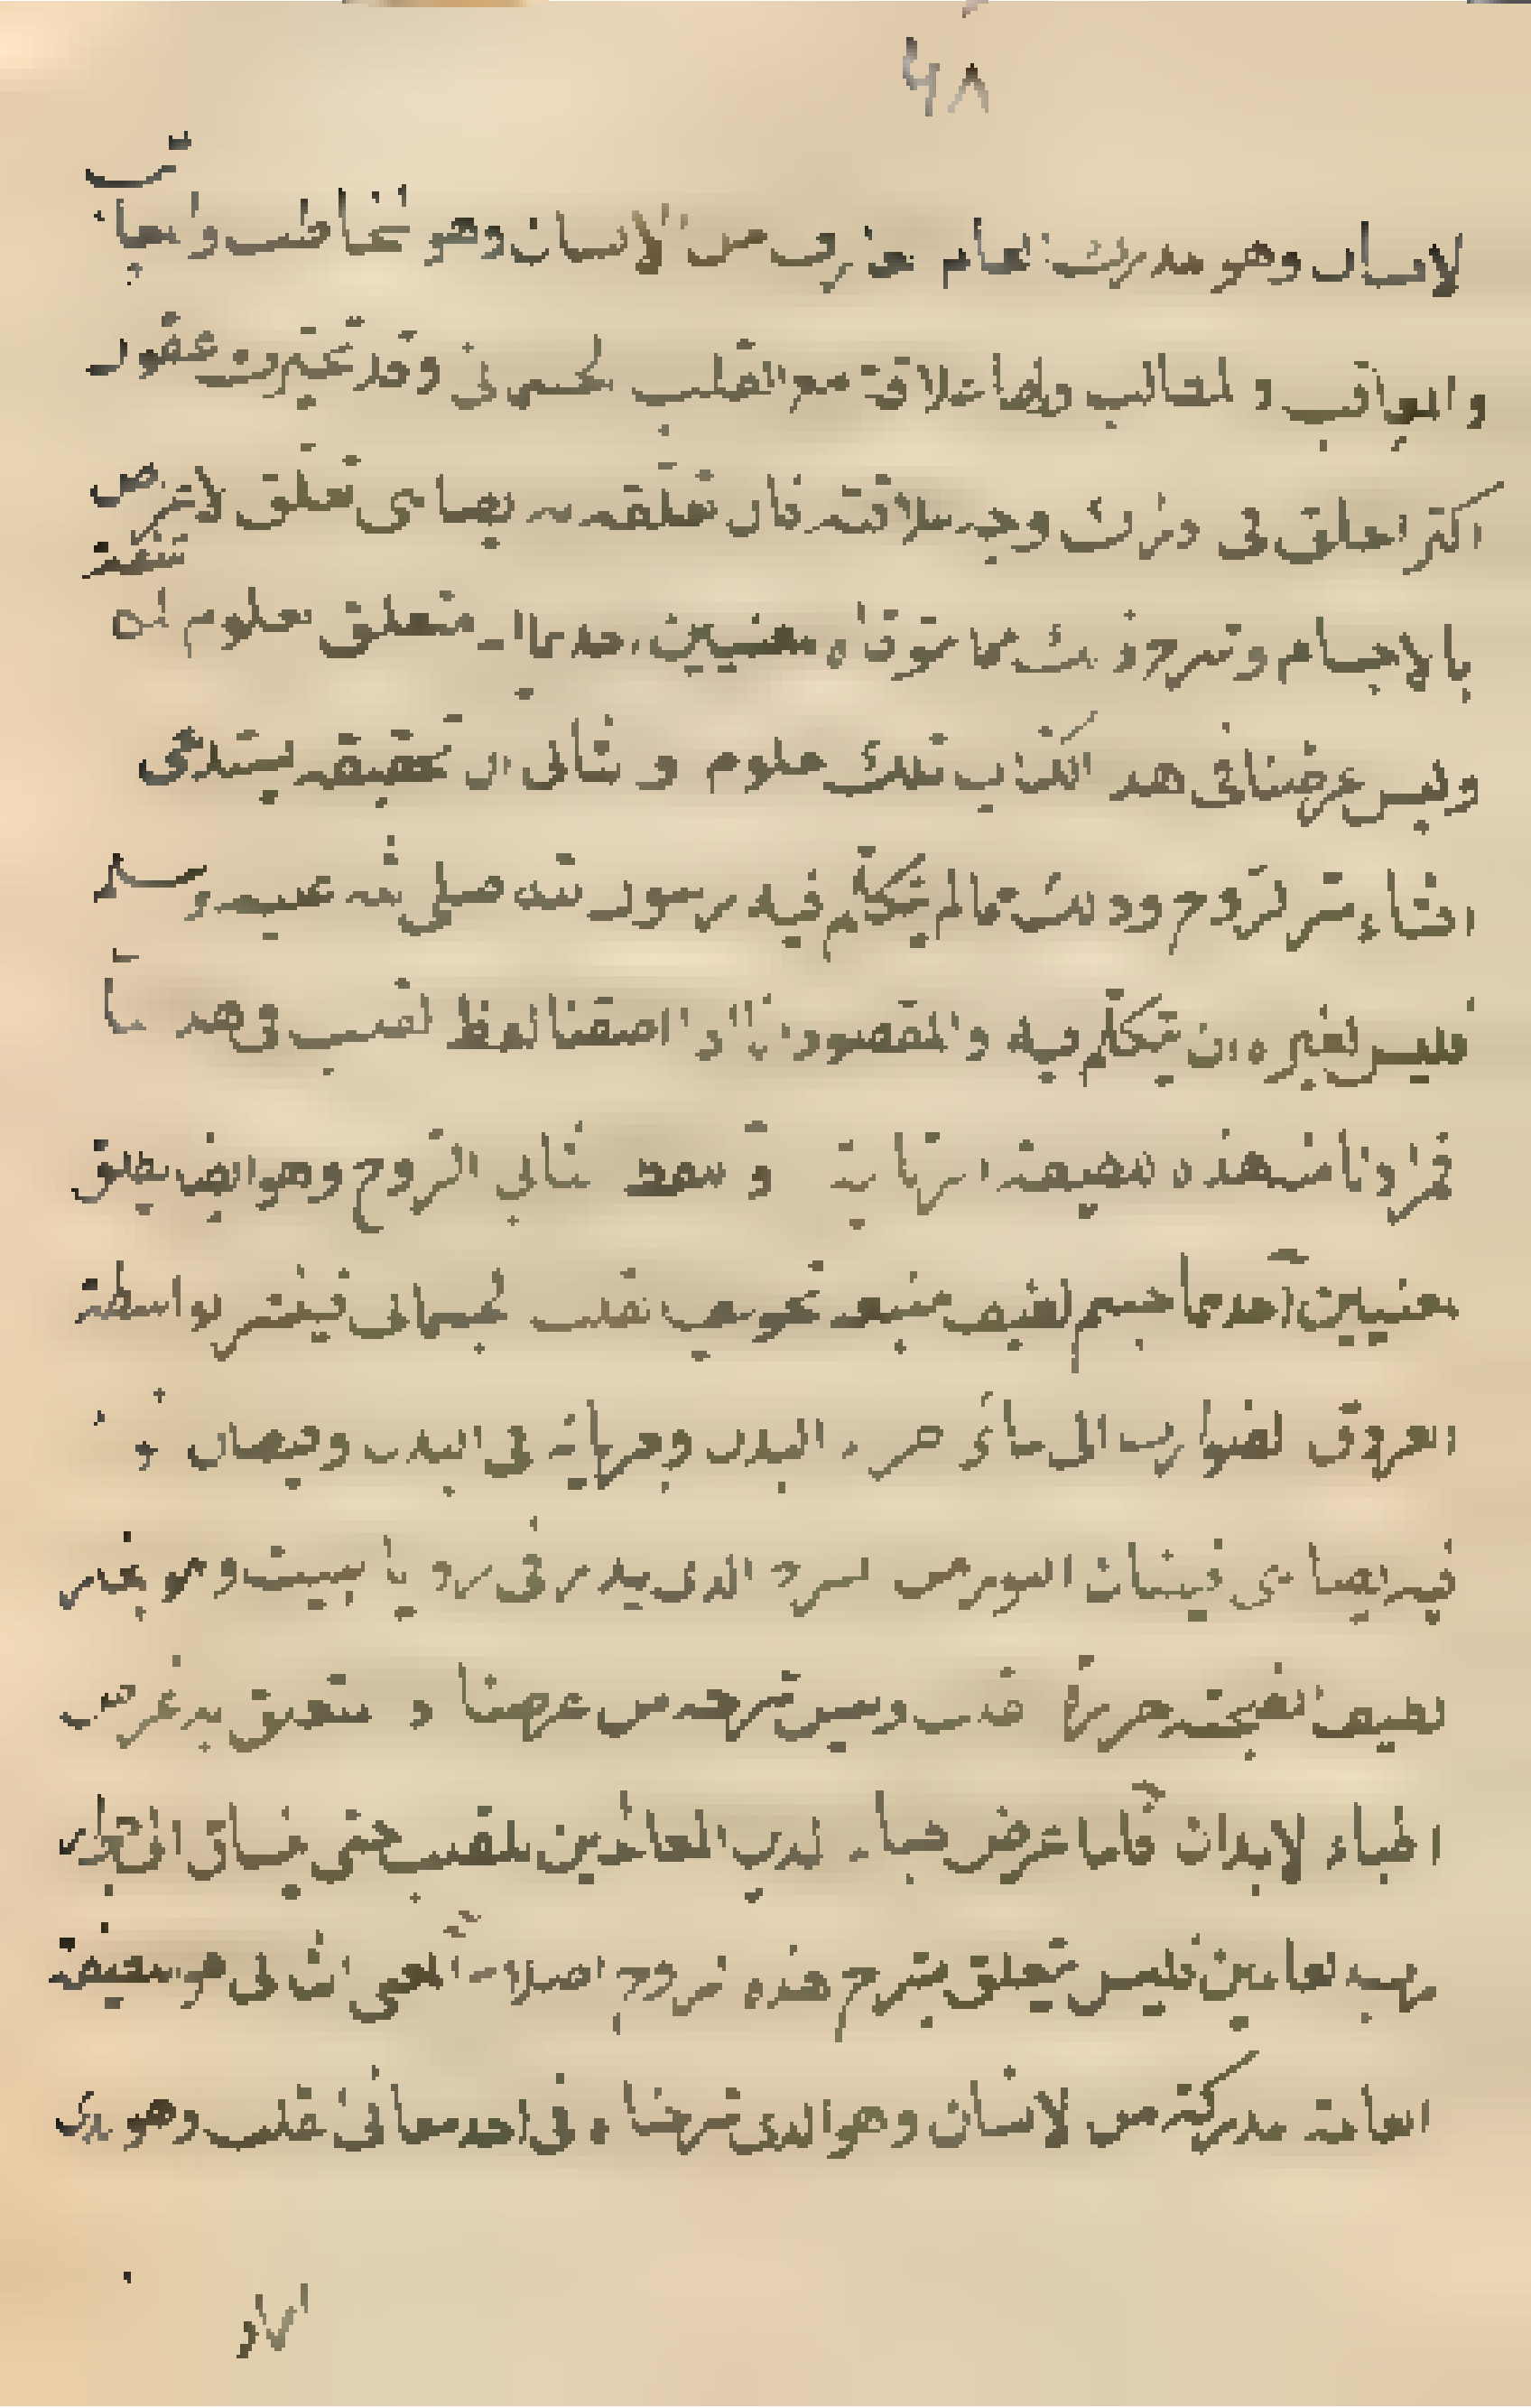 ٤٨
الانسان وهو مدرك العالم العارف من الانسان وهو المخاطب والمعاتب
والمعاقب والمطالب ولها علاقة مع القلب الجسماني وقد تحيرت عقول
اكثر الخلق في درك وجه علاقته فان تعلقه به يضاهي تعلق الاعراض
بالاجسام وشرح ذلك مما نتوقاه لمعنيين احدهما انه متعلق بعلوم المكاشفة
وليس غرضنا في هذا الكتاب تلك العلوم والثاني ان تحقيقه يستدعى
افشاء سر الروح وذلك مما لم يتكلم فيه رسول الله صلى الله عليه وسلم
فليس لغيره ان يتكلم فيه والمقصود انا اذا اطلقنا لفظ القلب في هذا
اردنا به هذه اللطيفة الربانية واللفظ الثاني الروح وهو ايضا يطلق
لمعنيين احدهما جسم لطيف منبعه تجويف القلب الجسماني فينتشر بواسطة
العروق الضوارب الى سائر اجزاء البدن وجريانه في البدن وفيضان
فيه يضاهي فيضان النور من السراج الذي يدار في زوايا البيت وهو بخار
لطيف نضجته حرارة القلب وليس شرحه من غرضنا اذ المتعلق به غرض
اطباء الابدان فاما غرض اطباء الدين المعالجين للقلب حتى ينساق الى جوار
رب العالمين فليس يتعلق بشرح هذه الروح اصلا المعنى الثاني هو اللطيفة
العالمة المدركة من الانسان وهو الذي شرحناه في احد معاني القلب وهو الذي